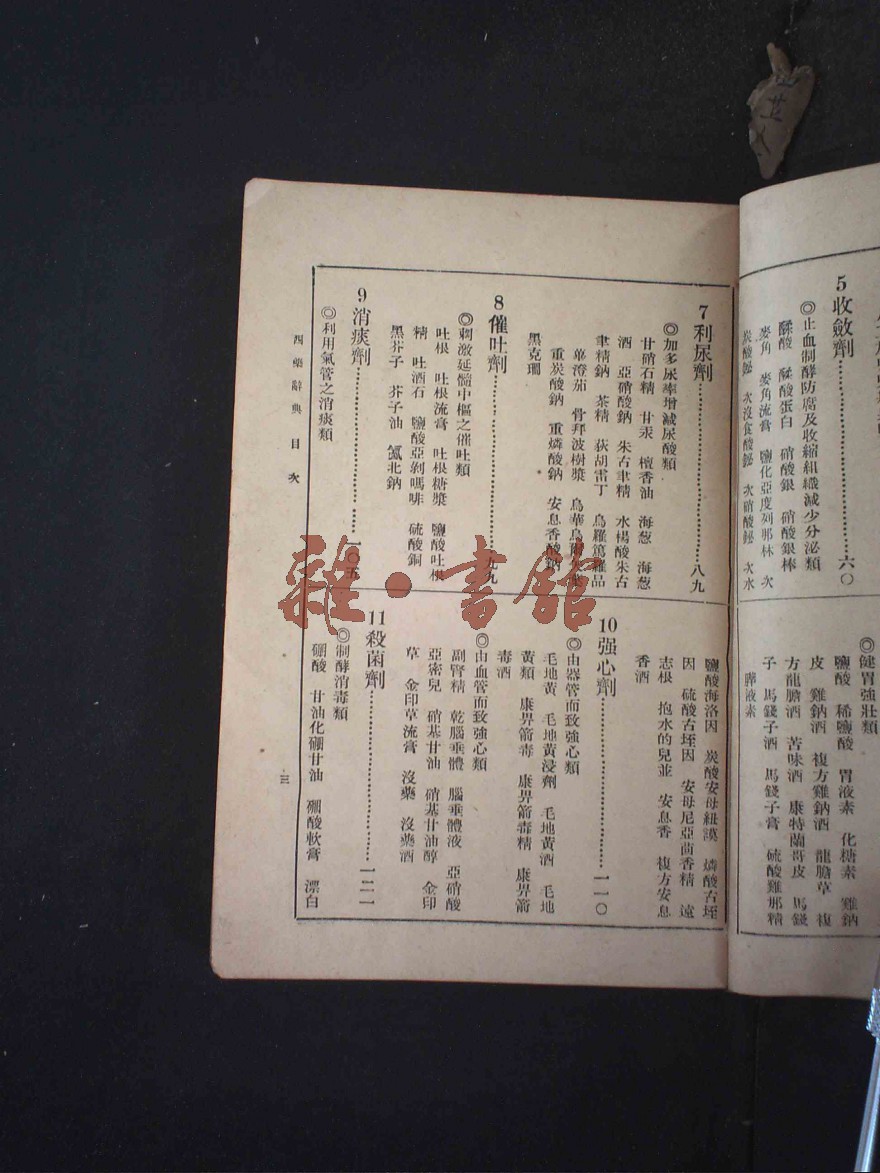 5 收斂劑……六〇
◎止血制酵防腐及收縮組織減少分泌類
鞣酸 鞣酸蛋白 硝酸銀 硝酸銀棒
麥角 麥角流膏 鹽化亞度列那林 次
炭酸鉍 次沒食酸鉍 次硝酸鉍 次水
◎健胃強壯類
鹽酸 稀鹽酸 胃液素 化糖素 雞鈉
皮 雞鈉酒 複方雞鈉酒 龍膽草 複
方龍膽酒 苦味酒 康特蘭哥皮 馬錢
子 馬錢子酒 馬錢子膏 硫酸雞那精
膵液素
7 利尿劑……八九
◎加多尿率增減尿酸類
甘硝石精 甘汞 檀香油 海葱 海葱
酒 亞硝酸鈉 朱古聿精 水楊酸朱古
聿精鈉 茶精 荻胡雷丁 烏羅篤羅品
蓽澄茄 骨拜波樹漿 烏華烏
重炭酸鈉 重燐酸鈉 安息香酸鈉
黑克珊
8 催吐劑……九九
◎刺激延髓中樞之催吐類
吐根 吐根流膏 吐根糖漿 鹽酸吐根
精 吐酒石 鹽酸亞剝嗎啡 硫酸銅
黑芥子 芥子油 北鈉
9 消痰劑……一〇五
◎利用氣管之消痰類
鹽酸海洛因 炭酸安母紐謨 燐酸古垤
因 硫酸古垤因 安母尼亞茴香精 遠
志根 抱水的兒並 安息香 複方安息
香酒
10 强心劑……一一〇
◎由器管而致强心類
毛地黃 毛地黃浸劑 毛地黃酒 毛地
黃類 康畀箭毒 康畀箭毒精 康畀箭
毒酒
◎由血管而致强心類
副腎精 乾腦垂體 腦垂體液 亞硝酸
亞密兒 硝基甘油 硝基甘油醇 金印
草 金印草流膏 沒藥 沒藥酒
11 殺菌劑……一二一
◎制酵消毒類
硼酸 甘油化硼甘油 硼酸軟膏 漂白
西藥辭典 目次
三
雜·書館